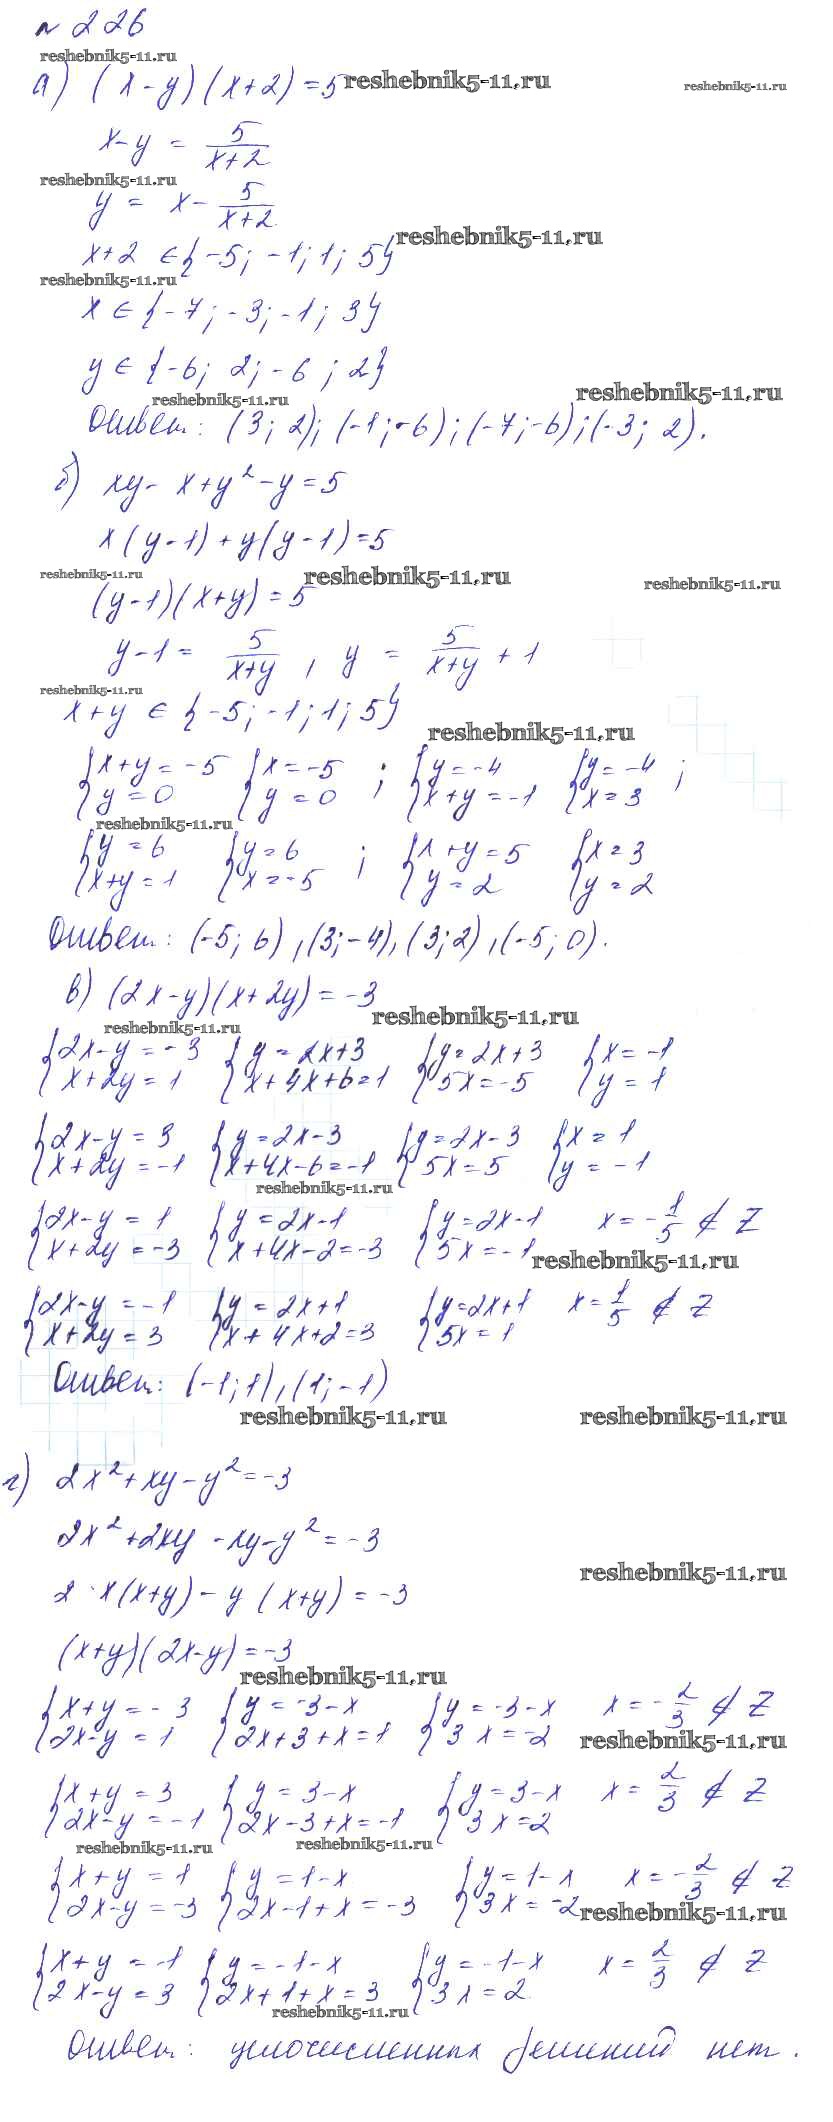 № 226
reshebnik5-11.ru
а) (x-y)(x+2)=5 reshebnik5-11.ru reshebnik5-11.ru
x-y = 5/(x+2)
reshebnik5-11.ru
y = x - 5/(x+2)
x+2 ∈ {-5; -1; 1; 5} reshebnik5-11.ru
reshebnik5-11.ru
x ∈ {-7; -3; -1; 3}
y ∈ {-6; 2; -6; 2}
reshebnik5-11.ru reshebnik5-11.ru
Ответ: (3; 2); (-1; -6); (-7; -6); (-3; 2).
б) xy - x + y² - y = 5
x(y-1)+y(y-1)=5
reshebnik5-11.ru reshebnik5-11.ru reshebnik5-11.ru
(y-1)(x+y)=5
y-1 = 5/(x+y), y = 5/(x+y) + 1
reshebnik5-11.ru
x+y ∈ {-5; -1; 1; 5}
reshebnik5-11.ru
{x+y=-5 {x=-5 ; {y=-4 {y=-4 ;
y=0 y=0 x+y=-1 x=3
reshebnik5-11.ru
{y=6 {y=6 ; {x+y=5 {x=3
x+y=1 x=-5 y=2 y=2
Ответ: (-5; 6), (3; -4), (3; 2), (-5; 0).
в) (2x-y)(x+2y)=-3
reshebnik5-11.ru reshebnik5-11.ru
{2x-y=-3 {y=2x+3 {y=2x+3 {x=-1
x+2y=1 x+4x+6=1 5x=-5 y=1
{2x-y=3 {y=2x-3 {y=2x-3 {x=1
x+2y=-1 x+4x-6=-1 5x=5 y=-1
reshebnik5-11.ru
{2x-y=1 {y=2x-1 {y=2x-1 x=-1/5 ∉ Z
x+2y=-3 x+4x-2=-3 5x=-1
reshebnik5-11.ru
{2x-y=-1 {y=2x+1 {y=2x+1 x=1/5 ∉ Z
x+2y=3 x+4x+2=3 5x=1
Ответ: (-1; 1), (1; -1)
reshebnik5-11.ru reshebnik5-11.ru
г) 2x²+xy-y²=-3
2x²+2xy-xy-y²=-3
reshebnik5-11.ru
2·x(x+y)-y(x+y)=-3
(x+y)(2x-y)=-3
reshebnik5-11.ru
{x+y=-3 {y=-3-x {y=-3-x x=-2/3 ∉ Z
2x-y=1 2x+3+x=1 3x=-2
reshebnik5-11.ru
{x+y=3 {y=3-x {y=3-x x=2/3 ∉ Z
2x-y=-1 2x-3+x=-1 3x=2
reshebnik5-11.ru reshebnik5-11.ru
{x+y=1 {y=1-x {y=1-x x=-2/3 ∉ Z
2x-y=-3 2x-1+x=-3 3x=-2
reshebnik5-11.ru
{x+y=-1 {y=-1-x {y=-1-x x=2/3 ∉ Z
2x-y=3 2x+1+x=3 3x=2
reshebnik5-11.ru
Ответ: целочисленных решений нет.